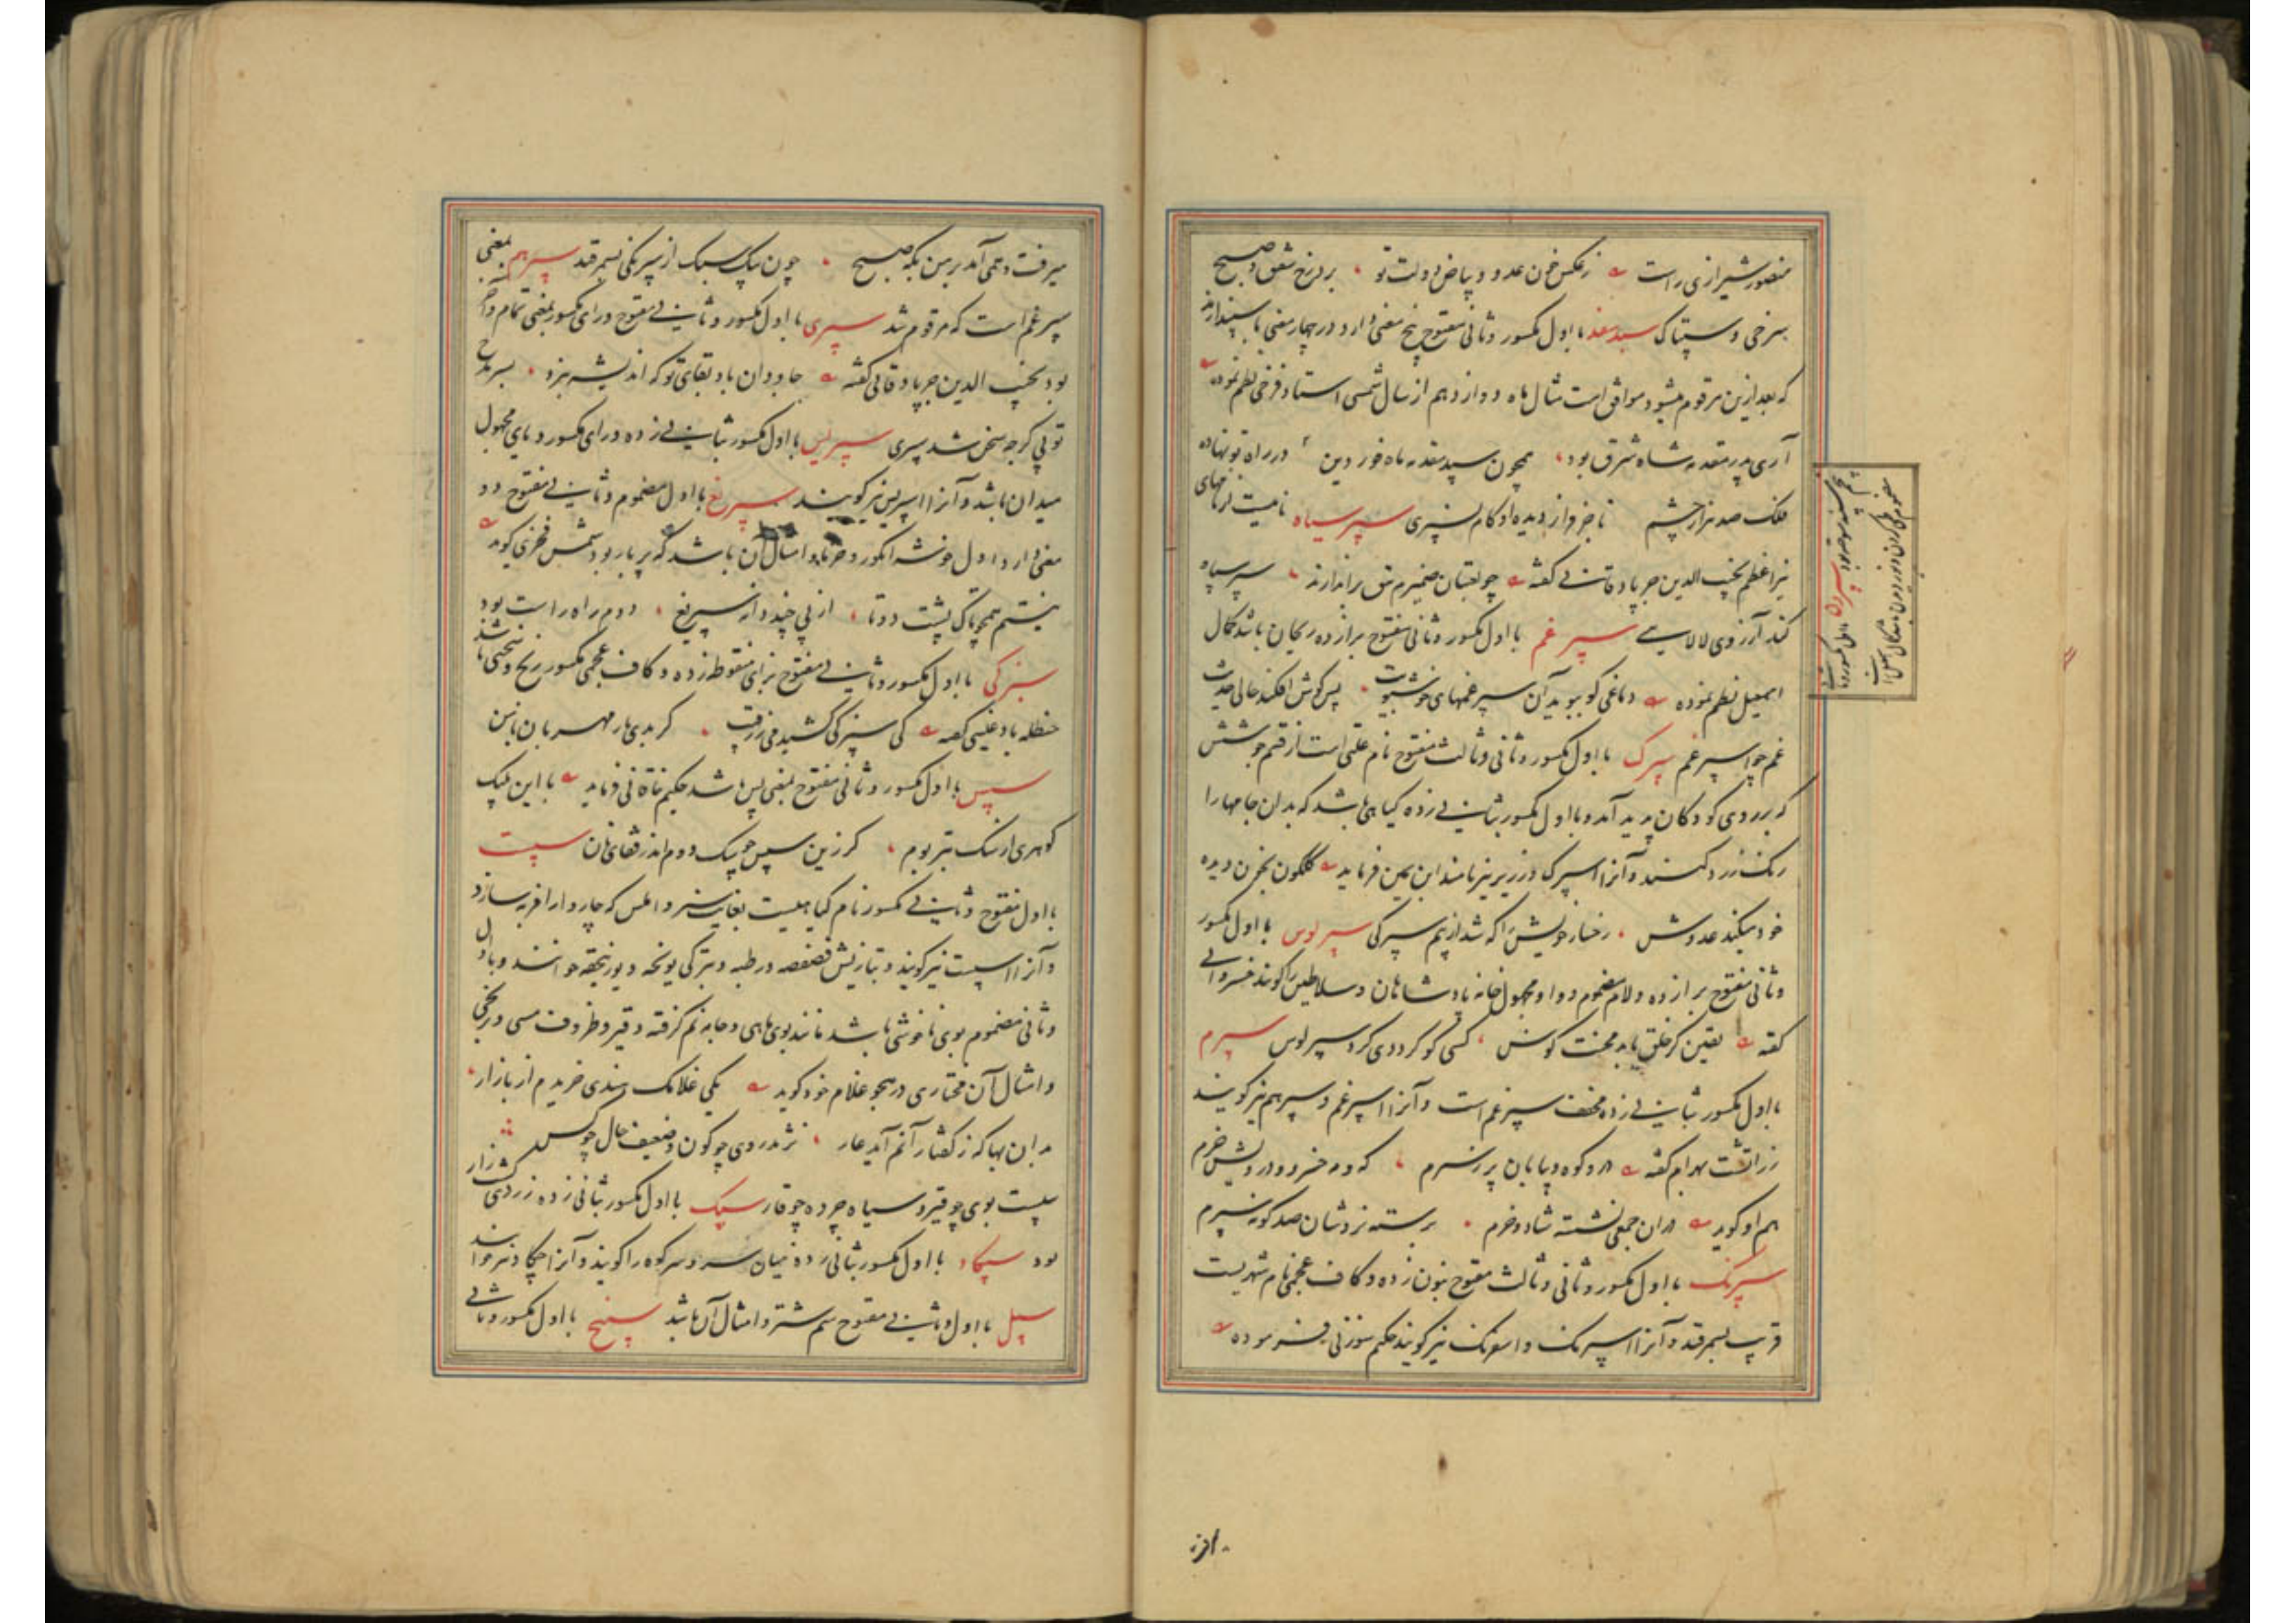 منصور شیرازی راست ز عکس خون عدو و بیاض دولت تو بر درخ شفق و صبح
سرخی و سپتاک سپندمد با اول مکسور و ثانی مفتوح پنج معنی دارد در چهار معنی با سپندار مذ
که بعد ازین مرقوم میشود موافق است مثال ماه دوازدهم از سال شمسی استاد فرخی نظم نموده
آری پدر مقدمه شاه شرق بود همچون سپندمد مه ماه فوردین در راه تو نهاده
فلک صد هزار چشم تا جز و از دیده او کام نسپری سپر سیاه نامیست از نامهای
نیر اعظم نجیب الدین جربادقانی گفته چو لعبتان ضمیرم تتق براندازند سپر سیاه
کند آرزوی لالایی سپرغم با اول مکسور و ثانی مفتوح برا زده ریحان باشد کمال
اسمعیل نظم نموده دماغی کو ببوید آن سپرغمهای خوشبویت پس گوش افکند حالی حدیث
غم چو اسپرغم سپرک با اول مکسور و ثانی و ثالث مفتوح نام علتی است از قسم جوشش
که بر روی کودکان پدید آمد و با اول مکسور بثانی زده گیاهی باشد که بدان جامها را
رنگ زرد کنند و آنرا اسپرک و زریر نیز نامند ابن یمین فرماید گلگون بخون دیده
خود میکند عدوش رخسار خویش را که شد از بیم سپرکی سپرلوس با اول مکسور
و ثانی مفتوح برا زده و لام مضموم و واو مجهول خانه پادشاهان و سلاطین را گویند خسروانی
گفته یقین کز خلق یابد محنت کوس کسی کو گردی کرد سپرلوس سپرم
با اول مکسور بثانی زده مخفف سپرغم است و آنرا اسپرغم و سپرهم نیز گویند
زراتشت بهرام گفته در و کوه و بیابان پر ز سپرم که و مه خسرو و درویش خرم
هم او گوید در آن جمعی نشسته شاد و خرم برسته نزدشان صد گونه سپرم
سپرنک با اول مکسور و ثانی و ثالث مفتوح بنون زده و کاف عجمی نام شهریست
قریب بسمرقند و آنرا اسپرنک و اسفرنک نیز گویند حکیم سوزنی فرموده
میرفت و همی آمد بر من بگه صبح چون پیک سبک از سپرنکی بسمرقند سپرهم بمعنی
سپرغم است که مرقوم شد سپری با اول مکسور و ثانی مفتوح و رای مکسور بمعنی تمام و آخر
بود نجیب الدین جربادقانی گفته جاودان باد بقای تو که اندیشه نبرد بسر مدح
تو پی گرچه سخن شد سپری سپریس با اول مکسور بثانی زده و رای مکسور و یای مجهول
میدان باشد و آنرا اسپریس نیز گویند سپریغ با اول مضموم و ثانی مفتوح دو
معنی دارد اول خوشه انگور و خرما و امثال آن باشد که پر بار بود شمس فخری گوید
نیستم همچو تاک پشت دوتا از پی چند دانه سپریغ دوم راه راست بود
سپزکی با اول مکسور و ثانی مفتوح بزای منقوطه زده و کاف عجمی مکسور رنج و سختی باشد
حنظله بادغیسی گفته کی سپزکی کشیدمی ز رقیب گر بدی یار مهربان با من
سپس با اول مکسور و ثانی مفتوح بمعنی پس باشد حکیم خاقانی فرماید با این یک
گوهری از سنک بتر بودم گر زین سپس چو سنگ دوم اندر قفای نان سپست
با اول مفتوح و ثانی مکسور نام گیاهیست بغایت سبز و املس که چاروا را فربه سازد
و آنرا اسپست نیز گویند و بتازیش فصفصه و رطبه و بترکی یونجه و یورنجقه خوانند و با اول
و ثانی مضموم بوی ناخوشی باشد مانند بوی ماهی و جامه نم گرفته و قیر و ظروف مسی و برنجی
و امثال آن مختاری در هجو غلام خود گوید یکی غلامک هندی خریدم از بازار
بدان بها که ز گفتار آنم آید عار نژند روی چو کون و ضعیف حال چو کس
سپست بوی چو قیر و سیاه چرده چو قار سپک با اول مکسور بثانی زده زردی کشتزار
بود سپکاد با اول مکسور بثانی زده میان سر و سر کوه را گویند و آنرا چکاد نیز خوانند
سپل با اول و ثانی مفتوح سم شتر و امثال آن باشد سپنج با اول مکسور و ثانی